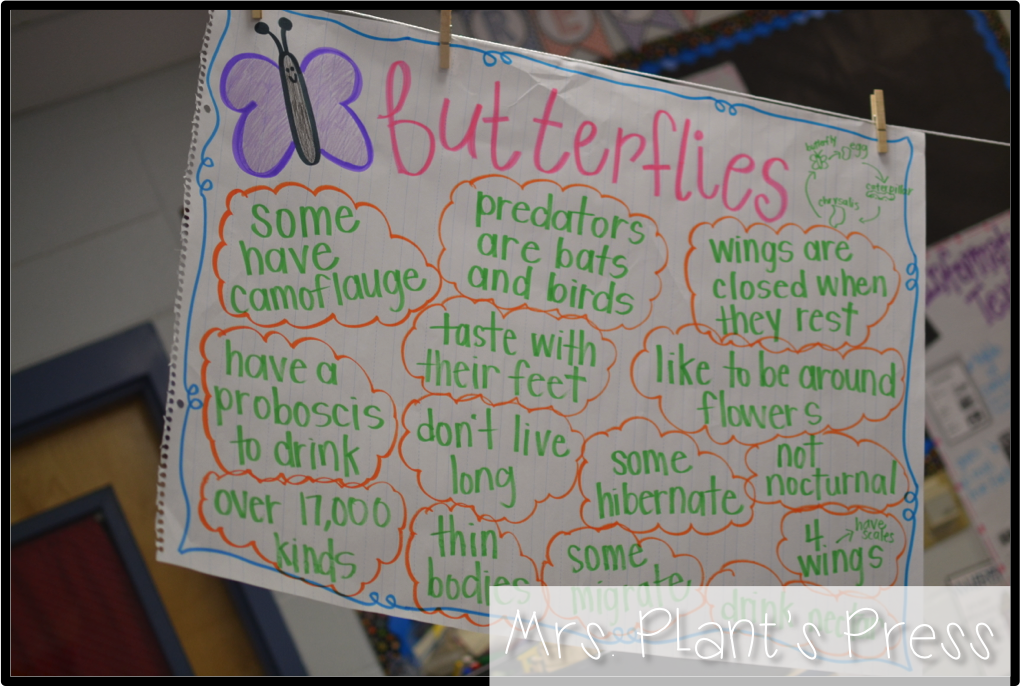 Butterflies
butterfly
egg
caterpillar
chrysalis
some
have
camoflauge
predators
are bats
and birds
wings are
closed when
they rest
taste with
their feet
like to be around
flowers
have a
proboscis
to drink
don't live
long
some
hibernate
not
nocturnal
over 17,000
kinds
thin
bodies
some
migrate
4
wings
have
scales
drink
Mrs. Plant's Press